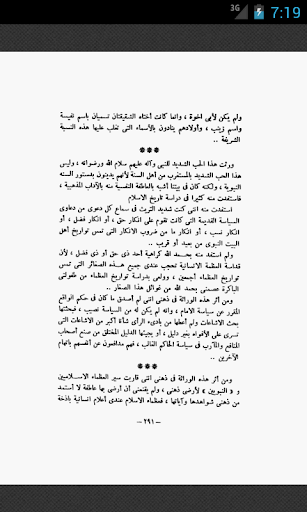 3G 7:19
ولم يكن لأبى اخوة ، وانما كانت أختاه الشقيقتان تسميان باسم نفيسة
واسم زينب ، وأولادهم ينادون بالأسماء التى تغلب عليها هذه النسبة
الشريفة ..
***
ورثت هذا الحب الشديد للنبى وآله عليهم سلام الله ورضوانه ، وليس
هذا الحب الشديد بالمستغرب من أهل السنة لأنهم يدينون بدستور السنة
النبوية ، ولكنه كان فى بيتنا أشبه بالعاطفة النفسية منه بالآداب المذهبية ،
فاستفدت منه كثيرا فى دراسة تاريخ الاسلام
استفدت منه اننى كنت شديد التريث فى سماع كل دعوى من دعاوى
السياسة القديمة التى كانت تقوم على انكار حق ، أو انكار فضل ، أو
انكار نسب ، أو انكار ما من ضروب الانكار التى تمس تواريخ أهل
البيت النبوى من بعيد أو قريب ..
ولم أستفد منه بحمد الله كراهية أحد ذى حق أو ذى فضل ، لأن
قداسة العظمة الانسانية تحجب عندى جميع هذه الصغائر التى تمس
تواريخ العظماء أجمعين ، وومى بدراسة تواريخ العظماء من طفولتى
الباكرة عصمنى بحمد الله من غوائل هذا الصغار ..
ومن أثر هذه الوراثة فى ذهنى اننى لم أصدق ما كان فى حكم الواقع
المقرر عن معاوية فى أيام الامام لأنه من السياسة نصيب ، فبحثتها
بحث الاشاعات ولم أعلمها من بادىء الرأى شأنا أكبر من الاشاعات التى
تسرى على الأفواه بغير دليل ، أو يجيئها الدليل المختلق من صنع أصحاب
المنافع والمآرب فى سياسة الحاكم الغالب ، فهم مدافعون عن أنفسهم باتهام
الآخرين ..
***
ومن أثر هذه الوراثة فى ذهنى اننى قاربت سير العظماء الاسلاميين
و « النبويين » لأرضى ذهنى ، ولم يقنعنى أن أرضى بها عاطفة لا تستمد
من ذهنى شواهدها وآياتها ، فعظماء الاسلام عندى أعلام انسانية باذخة
— ٢٩١ —